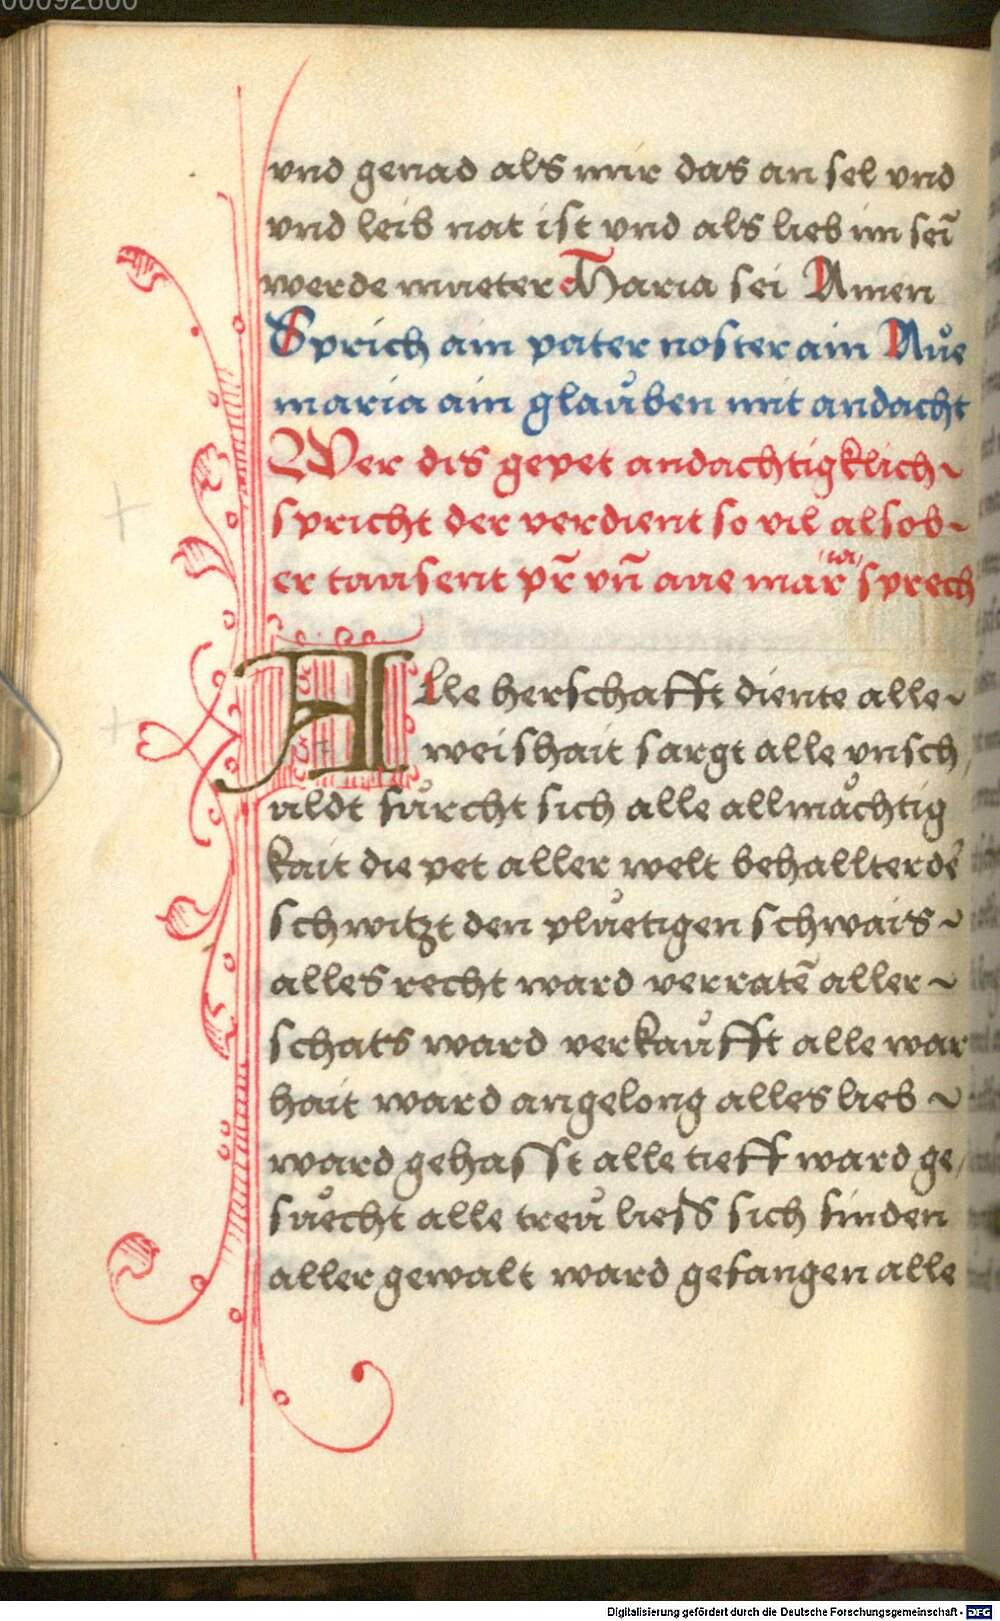 00092600
vnd genad als mir das an sel vnd
vnd leib nat ist vnd als lieb im sei͂
werde mueter Maria sei Amen
Sprich ain pater noster ain Aue
maria ain glaůben mit andacht
Wer dis gepet andachtigklich~
spricht der verdient so vil als ob~
er tausent pr̃ vn̄ aue mar̃ ia sprech
Alle herschafft diente alle~
weishait sargt alle vnsch
uldt fůrcht sich alle allmåchtig
kait die pet aller welt behallter de͂
schwitzt den plůetigen schwais~
alles recht ward verratē aller~
schats ward verkaůfft alle war
hait ward angelong alles lieb~
ward gehasst alle tieff ward ge/
sůecht alle treů lies sich finden
aller gewalt ward gefangen alle
Digitalisierung gefördert durch die Deutsche Forschungsgemeinschaft - DFG